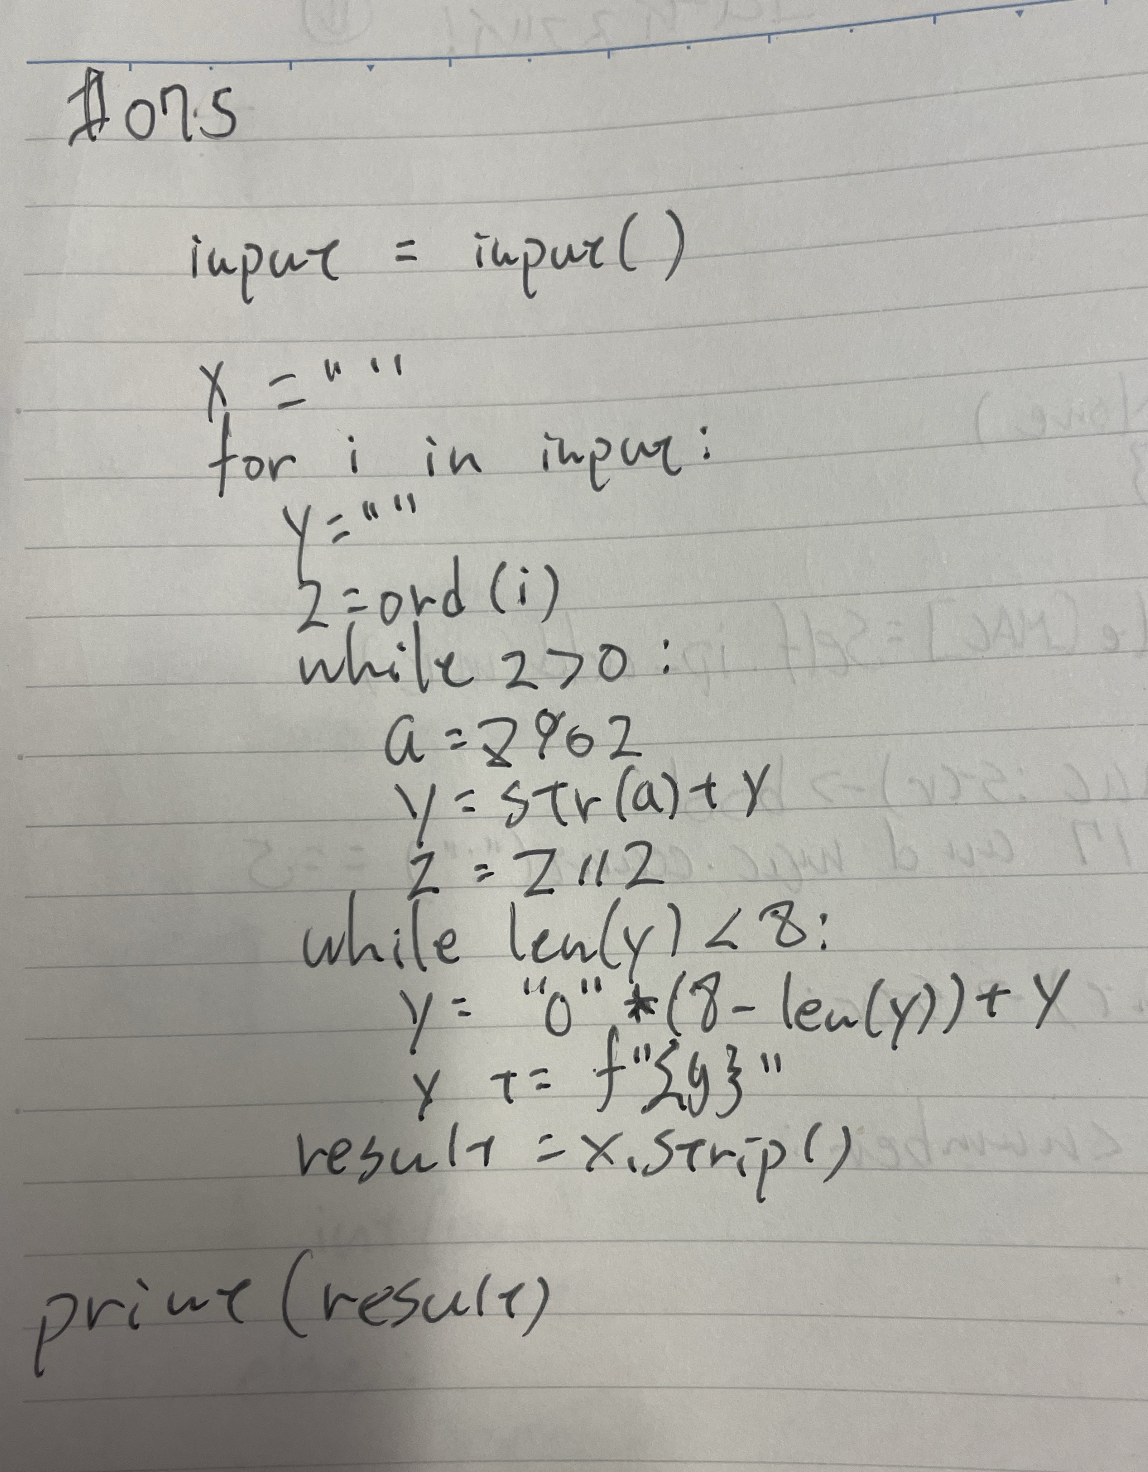 #075
input = input()
x = ""
for i in input:
y=""
z=ord(i)
while z>0:
a=z%2
y=str(a)+y
z=z//2
while len(y)<8:
y="0"*(8-len(y))+y
y += f"{y}"
result = x.strip()
print(result)